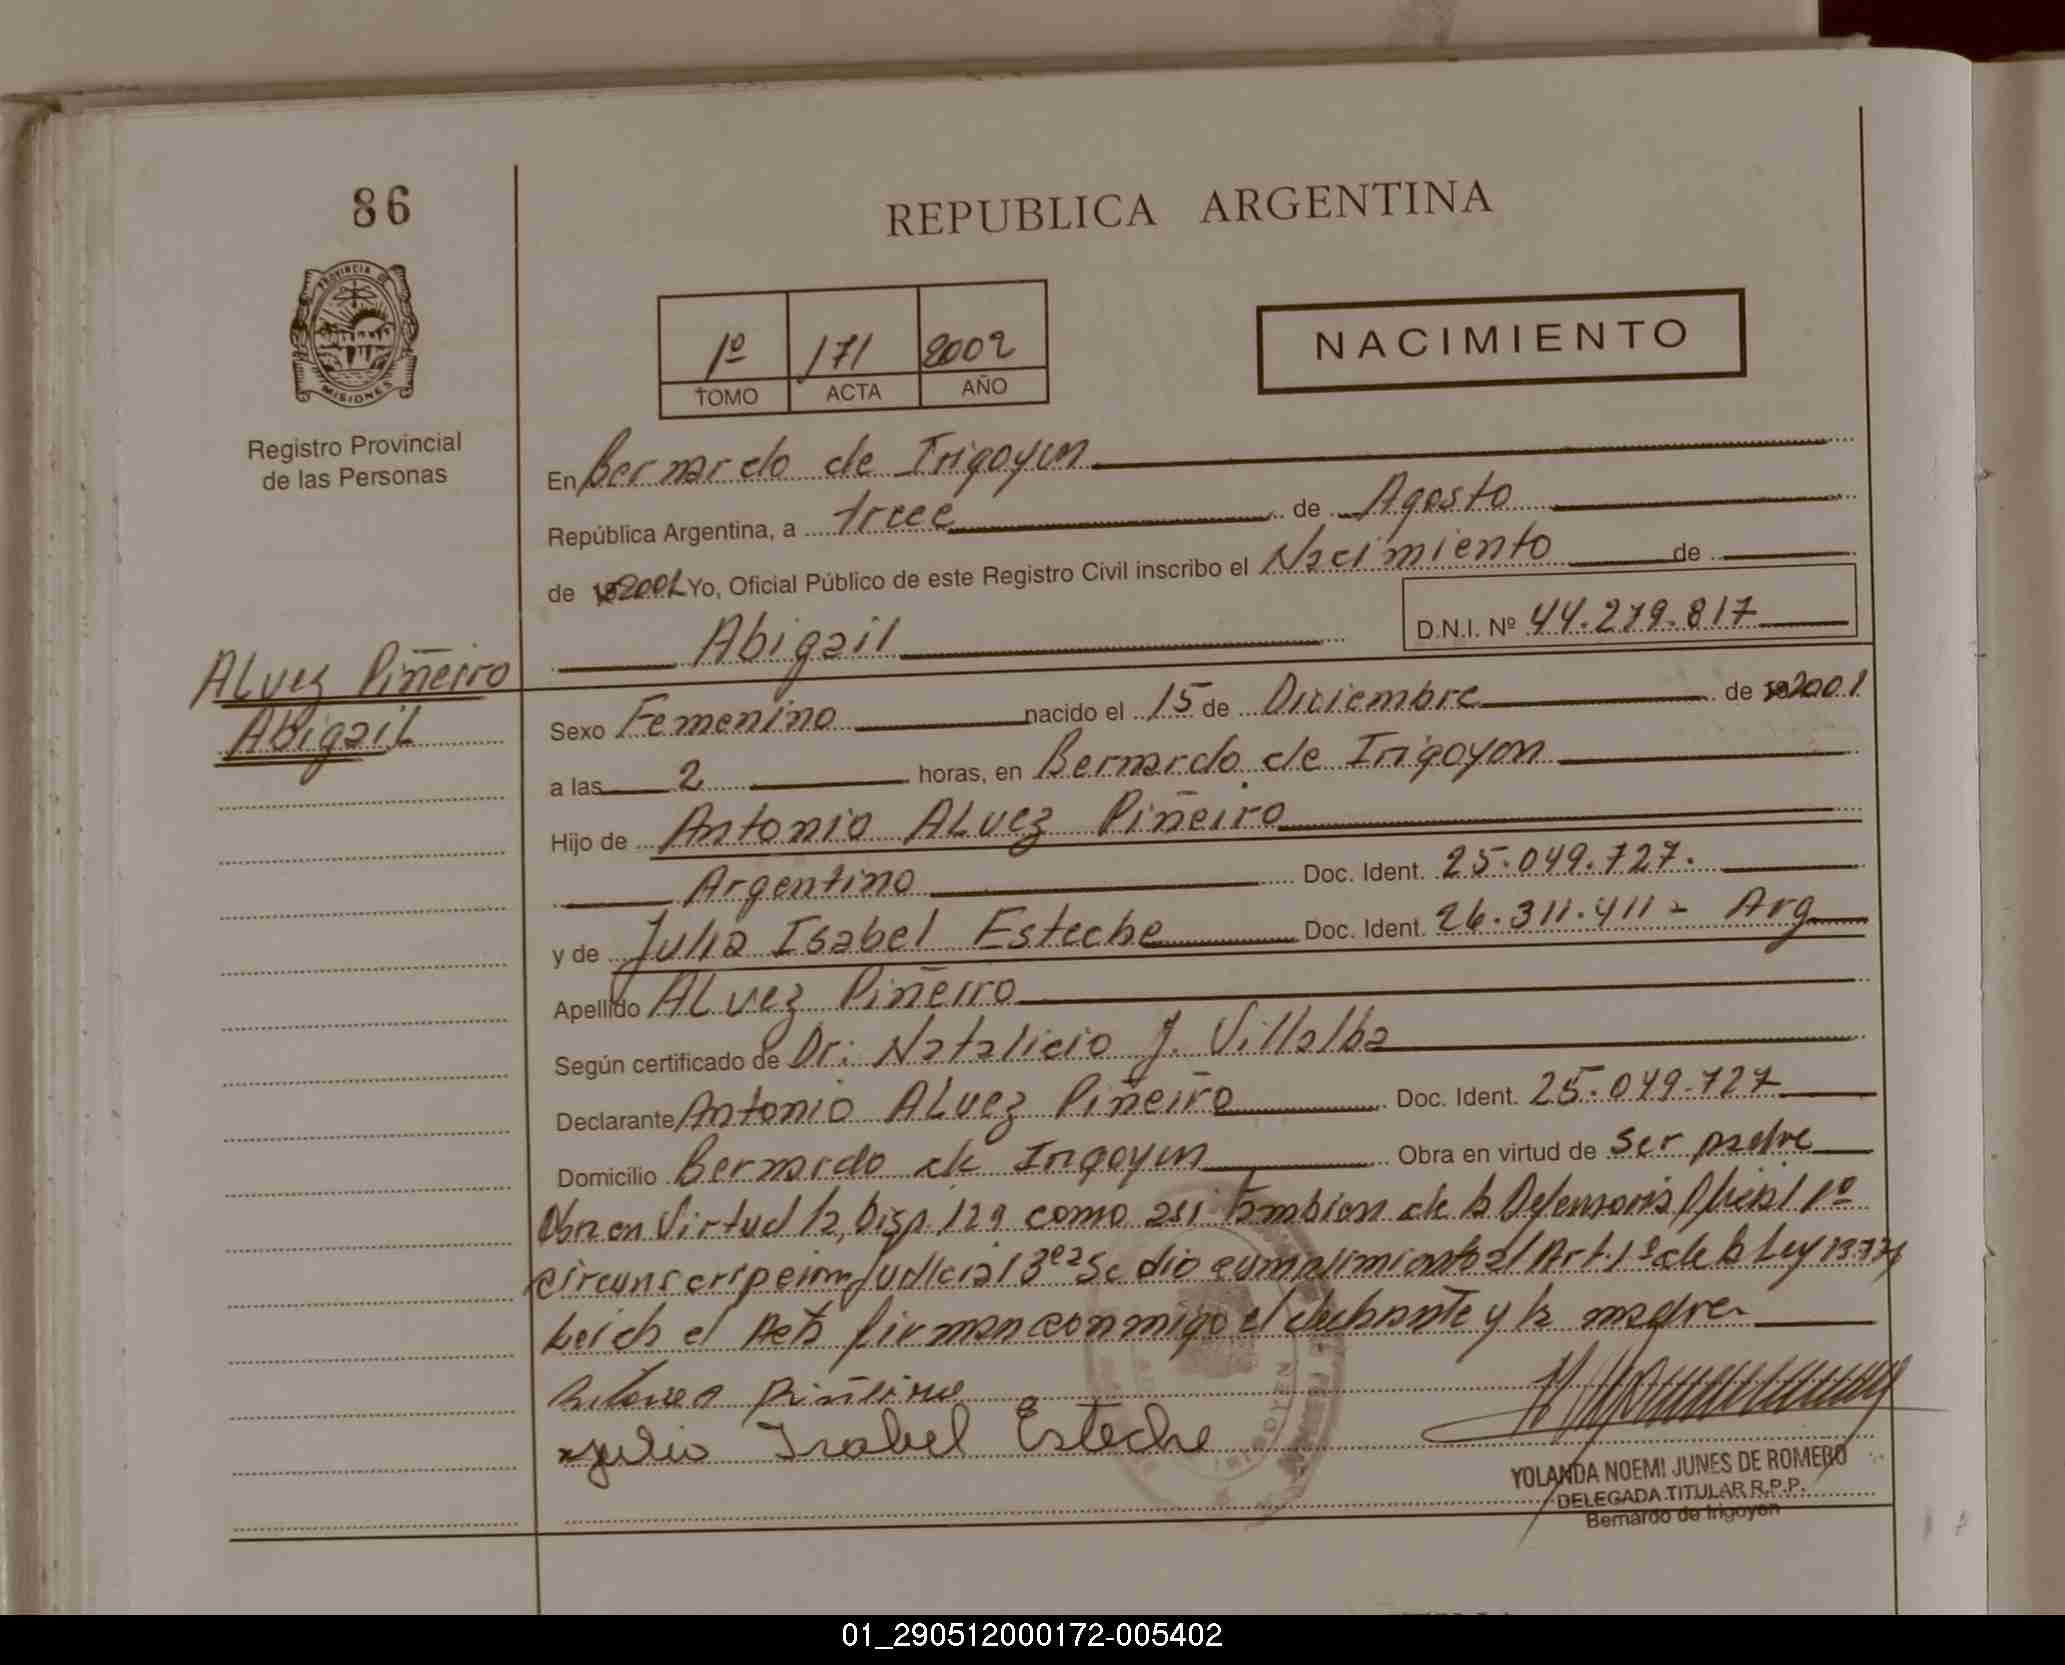 86
REPUBLICA ARGENTINA
PROVINCIA
MISIONES
Registro Provincial
de las Personas
1º 171 2002
TOMO ACTA AÑO
NACIMIENTO
En Bernardo de Irigoyen
República Argentina, a trece de Agosto
de 2002 Yo, Oficial Público de este Registro Civil inscribo el Nacimiento de
Abigail D.N.I. Nº 44.279.817
ALvez Piñeiro
Abigail
Sexo Femenino nacido el 15 de Diciembre de 2001
a las 2 horas, en Bernardo de Irigoyen
Hijo de Antonio ALvez Piñeiro
Argentino Doc. Ident. 25.049.727.
y de Julia Isabel Esteche Doc. Ident. 26.311.411 - Arg
Apellido ALvez Piñeiro
Según certificado de Dr: Natalicio J. Villalba
Declarante Antonio ALvez Piñeiro Doc. Ident. 25.049.727
Domicilio Bernardo de Irigoyen Obra en virtud de ser padre
Obra en Virtud la, Disp. 129 como asi tambien de la Defensoria Oficial 1º
circunscripcion Judicial 3era Se dio cumplimiento al Art. 1º de la Ley
Leida el Acta firman conmigo el declarante y la madre
Piñeiro
Julia Isabel Esteche
YOLANDA NOEMI JUNES DE ROMERO
DELEGADA TITULAR R.P.P.
Bernardo de Irigoyen
01_290512000172-005402